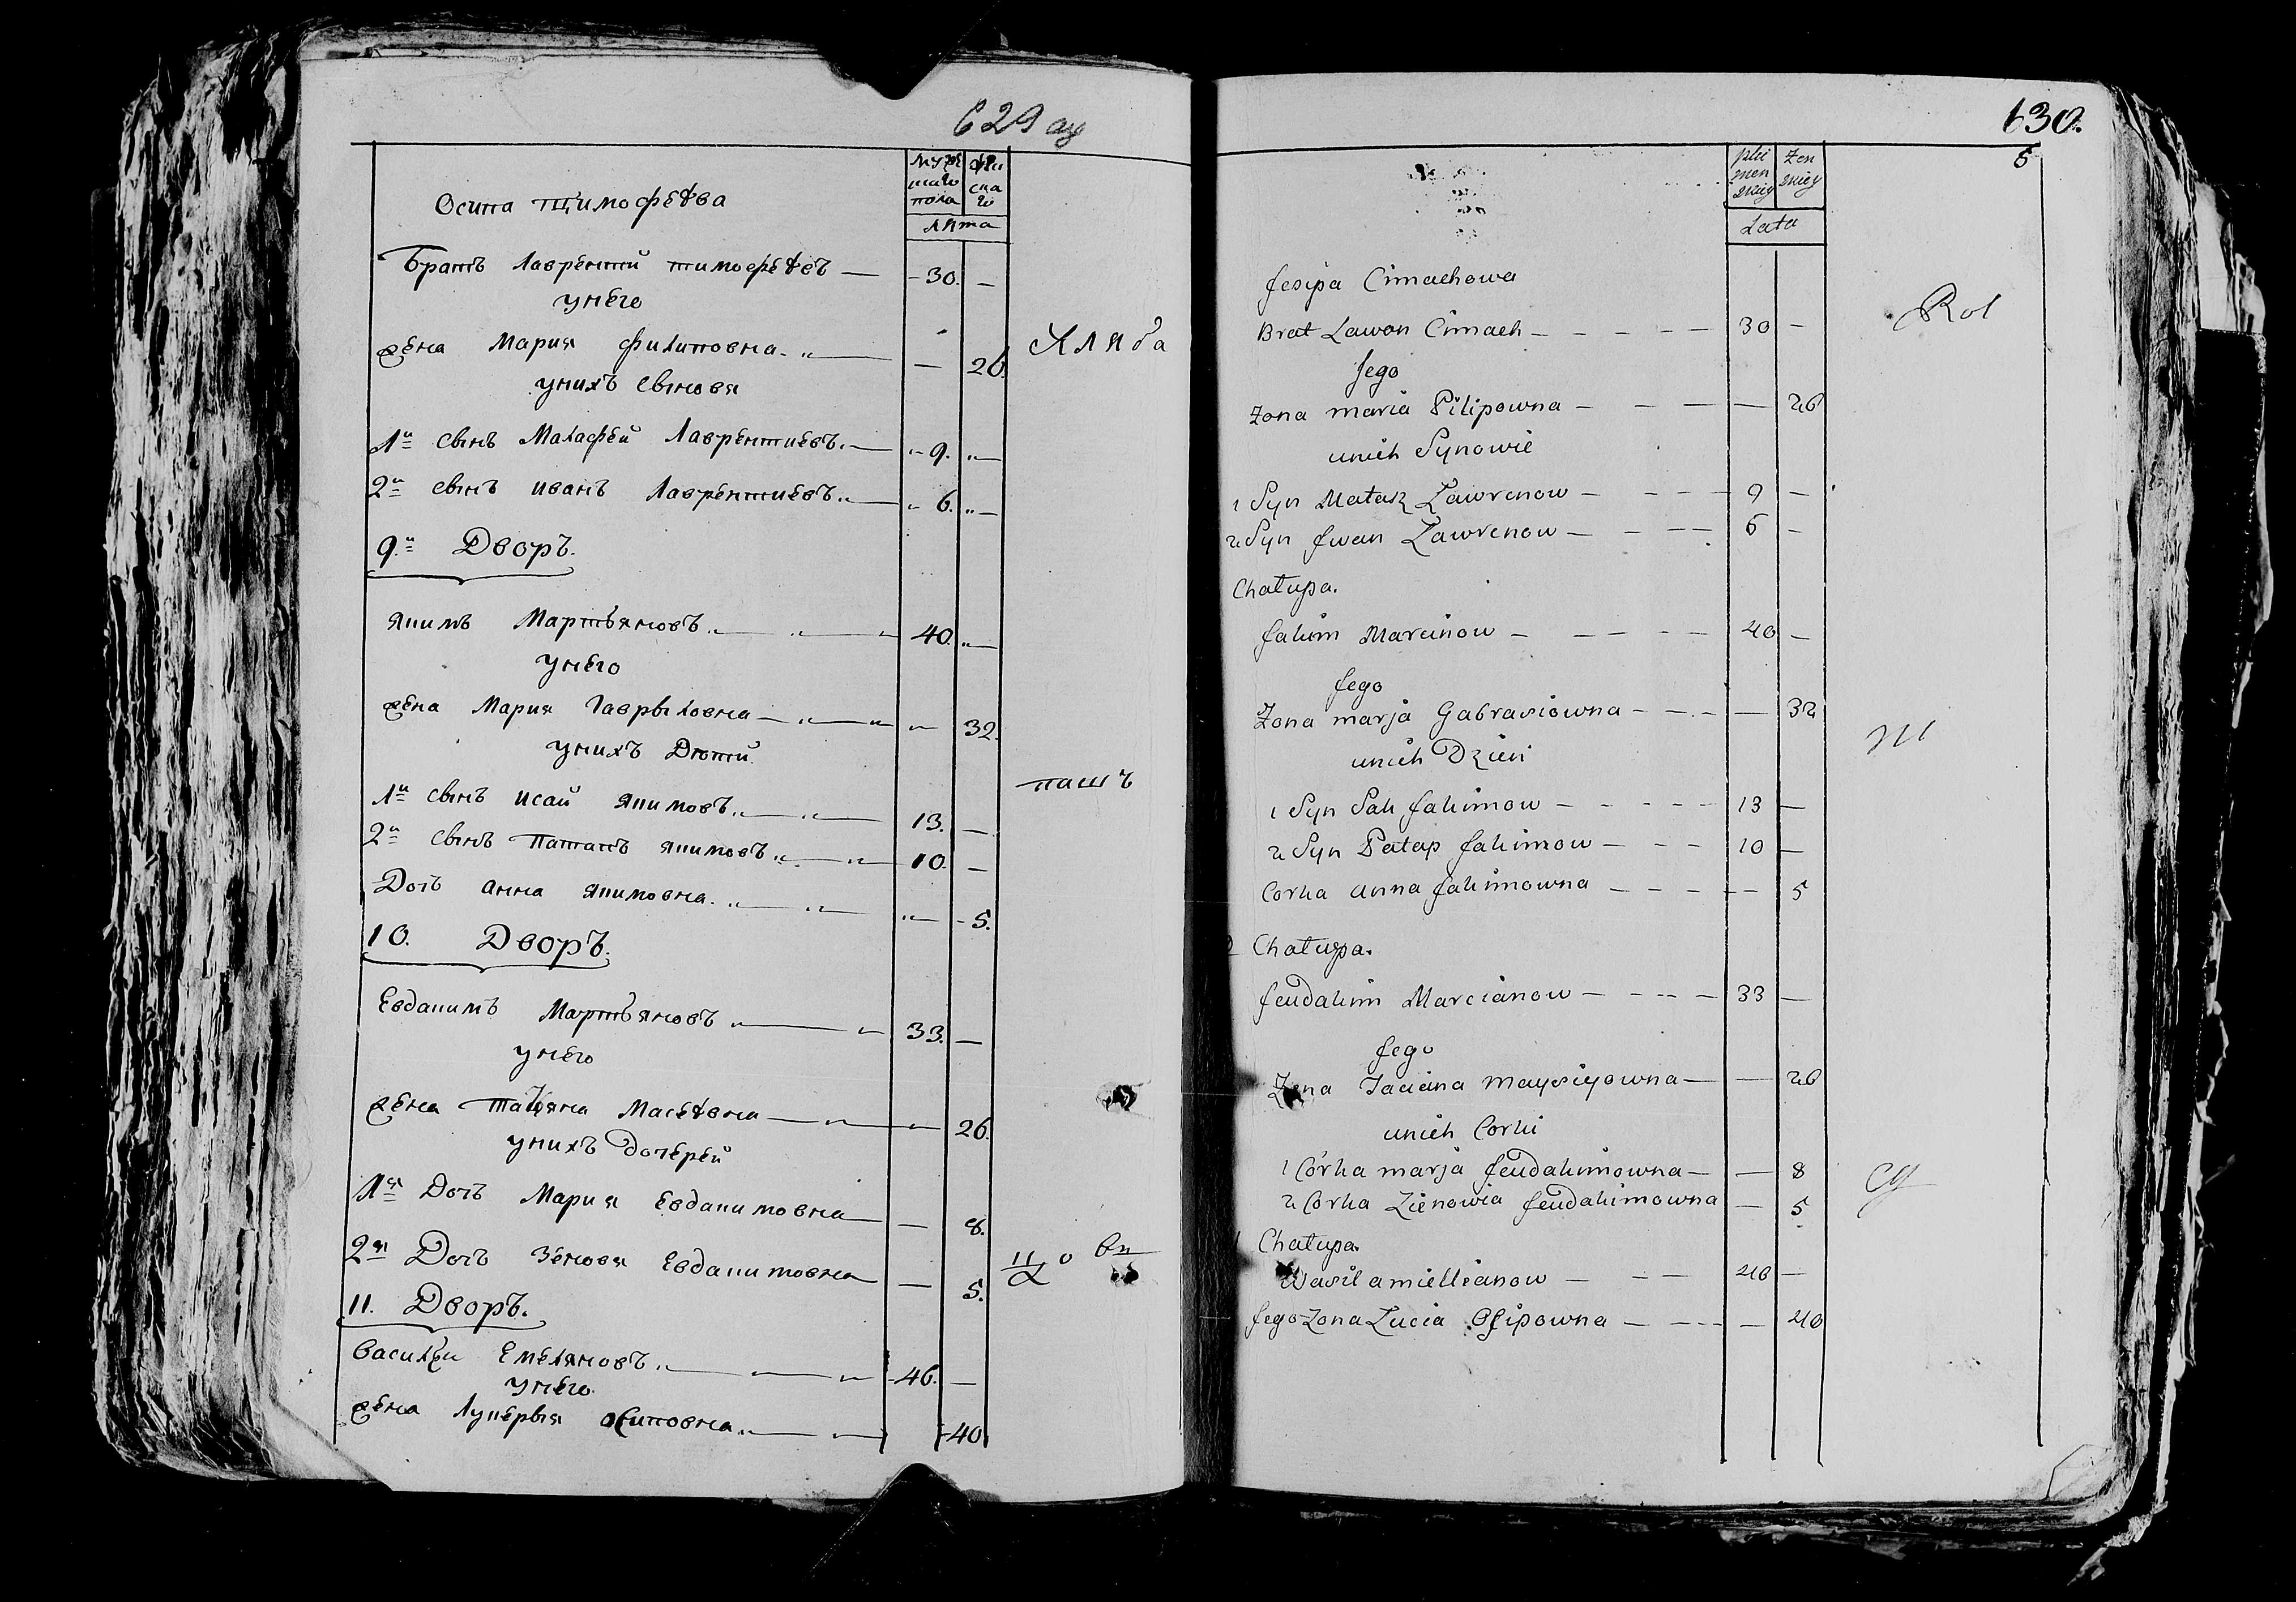 629 об
мужескаго пола
женскаго
лѣта
Осипа тимофѣева
Братъ Лаврентій тимофѣевъ — 30. —
унего
жена Мария филиповна — 26.
унихъ сыновя
1й сынъ Малафей Лаврентиевъ — 9. —
2й сынъ иванъ Лаврентиевъ — 6. —
9й Дворъ.
якимъ Мартьяновъ — 40. —
унего
жена Мария Гаврыловна — 32.
унихъ Дюти
1й сынъ исай якимовъ — 13. —
2й сынъ Патапъ якимовъ — 10. —
Дочь анна якимовна — 5.
10. Дворъ.
Евдакимъ Мартьяновъ — 33. —
унего
жена Татяна Масѣевна — 26.
унихъ дочерей
1я Дочь Мария Евдакимовна — 8.
2я Дочь Зеновя Евдакимовна — 5.
11. Дворъ.
Василеи Емеляновъ — 46. —
унего
жена Лукерья осиповна — 40
Хляба
пашъ
630.
Zen skiey
Lata
Jesipa Cimachowa
Brat Lawon Cimach — 30 —
Jego
Zona maria Pilipowna — 26
unich Synowie
1 Syn Matask Lawrenow — 9 —
2 Syn Jwan Lawrenow — 6 —
Chałupa.
Jakim Marcinow — 40 —
Jego
Zona marja Gabrasiowna — 32
unich Dzieci
1 Syn Sak Jakimow — 13 —
2 Syn Patap Jakimow — 10 —
Corka anna Jakimowna — 5
Chałupa.
Jeudakim Marcianow — 33 —
Jego
Zona Taciana maysiyowna — 26
unich Corki
1 Córka marja Jeudakimowna — 8
2 Corka Zienowia Jeudakimowna — 5
Chałupa.
Wasil amiellianow — 46 —
Jego Zona Lucia Osipowna — 40
Rol